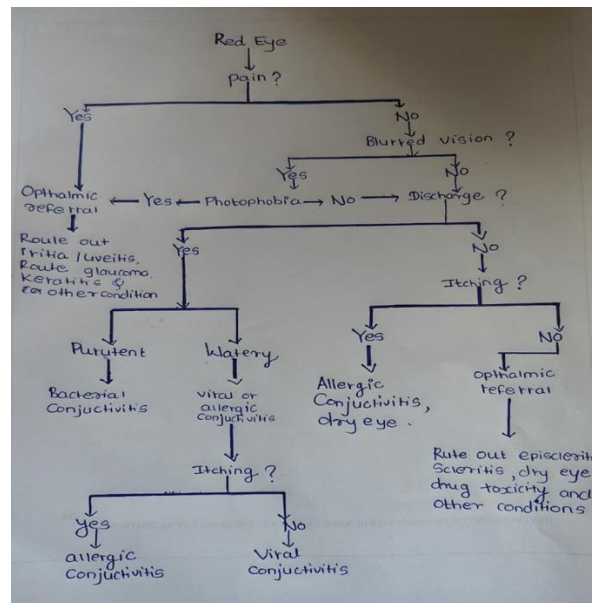 Red Eye
pain ?
Yes
No
Blurred vision ?
Yes
No
Opthalmic
referral
Yes
Photophobia
No
Discharge ?
Route out
Iritia / uveitis,
Route glaucoma,
Keratitis &
for other condition
Yes
No
Itching ?
Purutent
Watery
Yes
No
Bacterial
Conjuctivitis
viral or
allergic
Conjuctivitis
Allergic
Conjuctivitis,
dry eye.
opthalmic
referral
Itching ?
Rute out episclerit
Scleritis, dry eye
drug toxicity and
other conditions
yes
No
allergic
Conjuctivitis
Viral
Conjuctivitis